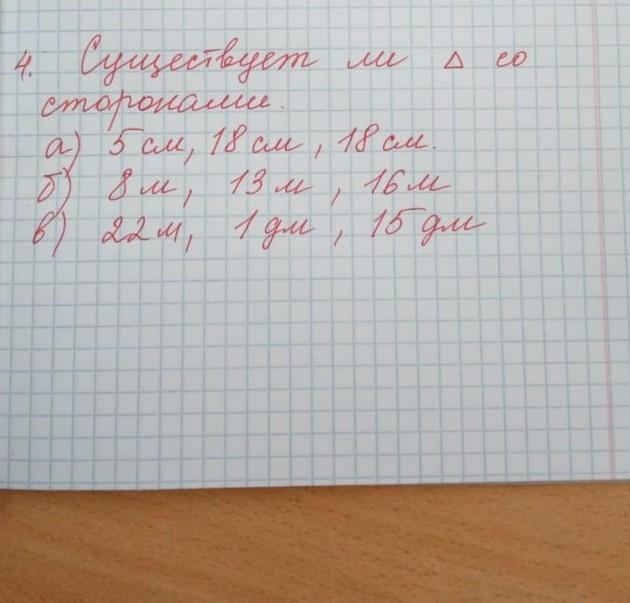 4. Существует ли △ со
сторонами.
а) 5 см, 18 см, 18 см.
б) 8 м, 13 м, 16 м
в) 22 м, 1 дм, 15 дм